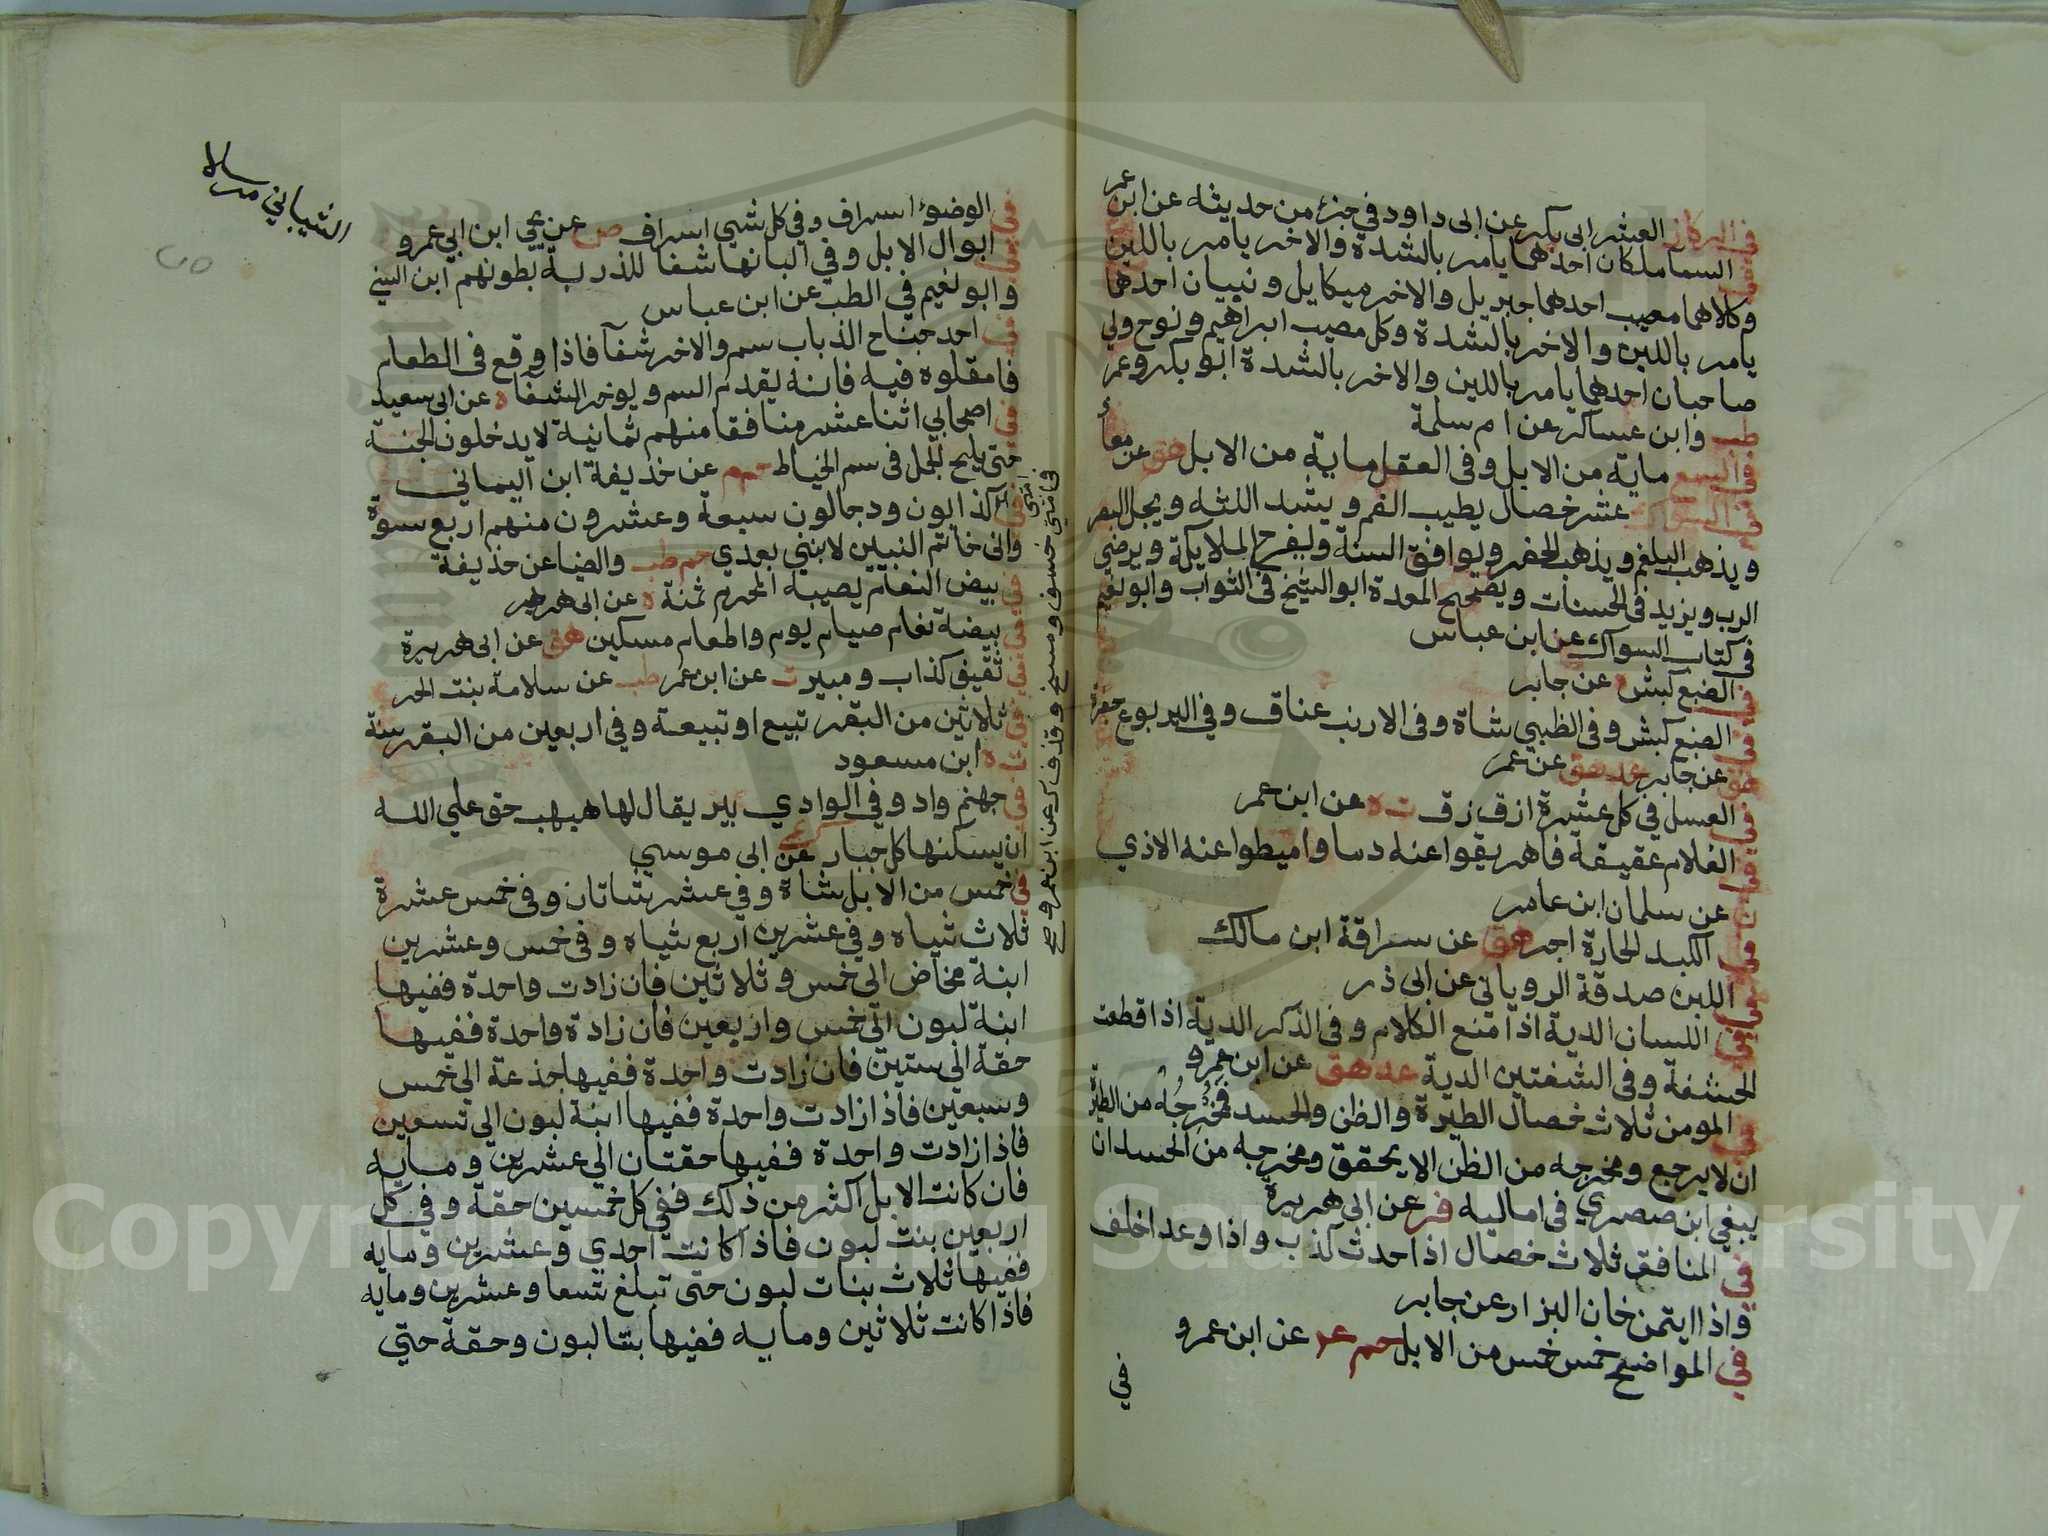 في الركاز العشر ابي بكر عن ابى داود في جزء من حديثه عن ابن عمر
في السما ملكان احدهما يامر بالشدة والاخر يامر باللين
وكلاهما مصيب احدهما جبريل والاخر ميكايل ونبيان احدهما
يامر باللين والاخر بالشدة وكل مصيب ابراهيم ونوح ولي
صاحبان احدهما يامر باللين والاخر بالشدة ابو بكر وعمر
طب وابن عساكر عن ام سلمة
في السمع ماية من الابل وفى العقل ماية من الابل هق عن معاذ
في السواك عشر خصال يطيب الفم ويشد اللثه ويجل البصر
ويذهب البلغم ويذهب الحفر ويوافق السنة ويفرح الملايكة ويرضي
الرب ويزيد فى الحسنات ويصحح المعدة ابو الشيخ فى الثواب وابو نعيم
فى كتاب السواك عن ابن عباس
في الضبع كبش ه عن جابر
في الضبع كبش وفى الظبي شاة وفى الارنب عناق وفي اليربوع جفرة
هق عن جابر عد هق عن عمر
في العسل في كل عشرة ازق زق ت ه عن ابن عمر
في الغلام عقيقة فاهريقوا عنه دما واميطوا عنه الاذي
ن عن سلمان ابن عامر
في الكبد الحارة اجر هق عن سراقة ابن مالك
في اللبن صدقة الروياني عن ابى ذر
في اللسان الدية اذا منع الكلام وفى الذكر الدية اذا قطعت
الحشفة وفى الشفتين الدية عد هق عن ابن عمرو
في المومن ثلاث خصال الطيرة والظن والحسد فمخرجه من الطيرة
ان لا يرجع ومخرجه من الظن الا يحقق ومخرجه من الحسد ان
يبغي ابن صصري فى اماليه فر عن ابى هريرة
في المنافق ثلاث خصال اذا حدث كذب واذا وعد اخلف
واذا ايتمن خان البزار عن جابر
في المواضح خمس خمس من الابل حم عد عن ابن عمرو
في
في الوضوء اسراف وفي كل شيي اسراف ص عن يحي ابن ابي عمرو
الشيباني مرسلا
في ابوال الابل وفي البانها شفا للذربة بطونهم ابن السني
وابو نعيم في الطب عن ابن عباس
في احد جناح الذباب سم والاخر شفآ فاذا وقع فى الطعام
فامقلوه فيه فانه يقدم السم ويوخر الشفآ ه عن ابى سعيد
في اصحابي اثنا عشر منافقا منهم ثمانية لا يدخلون الجنة
حتى يلج الجمل فى سم الخياط حم م عن حذيفة ابن اليماني
في امتي خسف ومسخ وقذف ك عن ابن عمرو صح
في امتي كذابون ودجالون سبعة وعشرون منهم اربع نسوة
واني خاتم النبيين لا بني بعدي حم طب والضيا عن حذيفة
في بيض النعام يصيبه المحرم ثمنه ه عن ابى هريره
في بيضة نعام صيام يوم واطعام مسكين هق عن ابى هريرة
في ثقيف كذاب ومبير ت عن ابن عمر طب عن سلامة بنت الحر
في ثلاثين من البقر تبيع او تبيعة وفي اربعين من البقر مسنة
ت ه ابن مسعود
في جهنم واد وفي الوادي بير يقال لها هبهب حق علي الله
ان يسكنها كل جبار ك عن ابى موسي
في خمس من الابل شاة وفي عشر شاتان وفى خمس عشرة
ثلاث شياه وفي عشرين اربع شياه وفى خمس وعشرين
ابنة مخاض الى خمس وثلاثين فان زادت واحدة ففيها
ابنة لبون الى خمس واربعين فان زادة واحدة ففيها
حقة الى ستين فان زادت واحدة ففيها جذعة الى خمس
وسبعين فاذا زادت واحدة ففيها ابنة لبون الى تسعين
فاذا زادت واحدة ففيها حقتان الى عشرين ومايه
فان كانت الابل اكثر من ذلك ففي كل خمسين حقة وفي كل
اربعين بنت لبون فاذا كانت احدي وعشرين ومايه
ففيها ثلاث بنات لبون حتى تبلغ تسعا وعشرين ومايه
فاذا كانت ثلاثين ومايه ففيها بنتا لبون وحقة حتي
Copyright © King Saud University